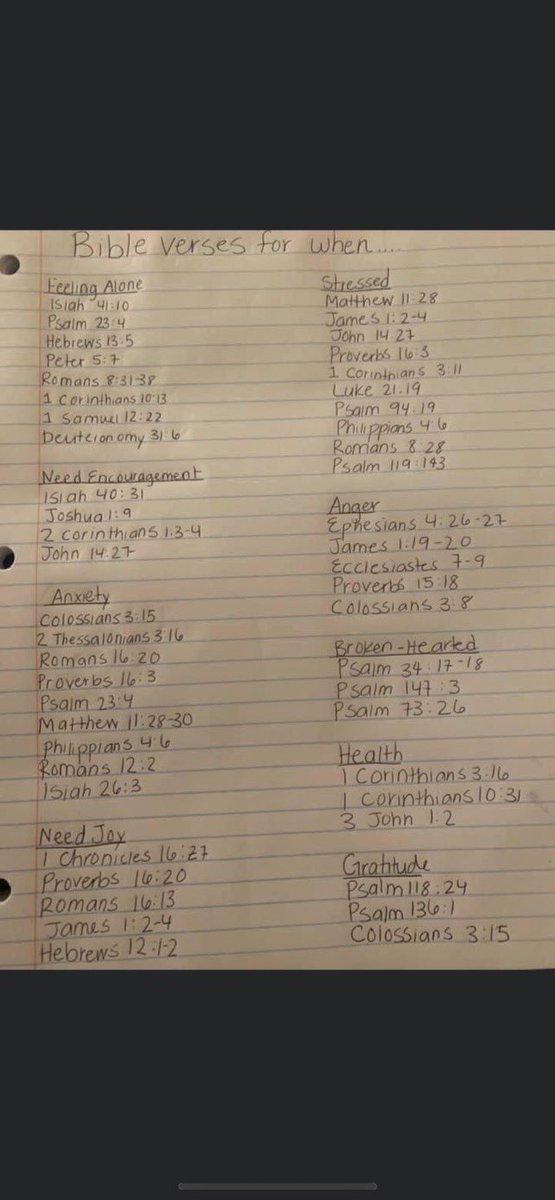 Bible verses for when....
Feeling Alone
Isiah 41:10
Psalm 23:4
Hebrews 13:5
Peter 5:7
Romans 8:31-38
1 Corinthians 10:13
1 Samuel 12:22
Deuteronomy 31:6
Need Encouragement
Isiah 40:31
Joshua 1:9
2 Corinthians 1:3-4
John 14:27
Anxiety
Colossians 3:15
2 Thessalonians 3:16
Romans 16:20
Proverbs 16:3
Psalm 23:4
Matthew 11:28-30
Philippians 4:6
Romans 12:2
Isiah 26:3
Need Joy
1 Chronicles 16:27
Proverbs 16:20
Romans 16:13
James 1:2-4
Hebrews 12:1-2
Stressed
Matthew 11:28
James 1:2-4
John 14:27
Proverbs 16:3
1 Corinthians 3:11
Luke 21:19
Psalm 94:19
Philippians 4:6
Romans 8:28
Psalm 119:143
Anger
Ephesians 4:26-27
James 1:19-20
Ecclesiastes 7-9
Proverbs 15:18
Colossians 3:8
Broken-Hearted
Psalm 34:17-18
Psalm 147:3
Psalm 73:26
Health
1 Corinthians 3:16
1 Corinthians 10:31
3 John 1:2
Gratitude
Psalm 118:24
Psalm 136:1
Colossians 3:15